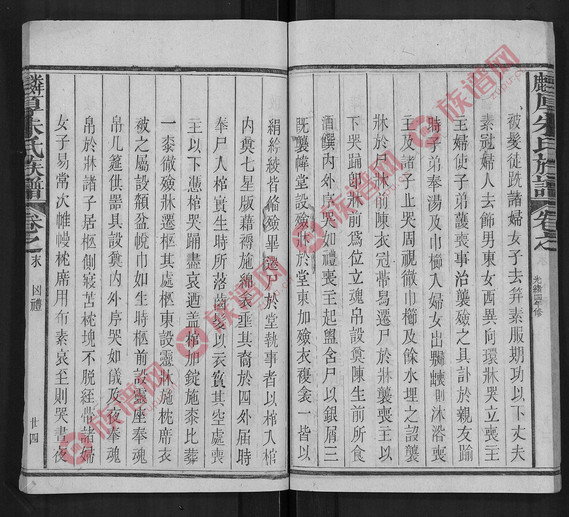 麟厚朱氏族譜
卷之
光緒四修
被髮徒跣諸婦女子去笄素服期功以下丈夫
素冠婦人去飾男東女西異向環牀哭立喪主
主婦使子弟護喪事治襲殮之具訃於親友踰
時子弟奉湯及巾櫛人婦女出翾幰則沐浴喪
主及諸子止哭周視徹巾櫛及餘水埋之設襲
牀於尸牀前陳衣冠帶舄遷尸於牀襲喪主以
下哭踊卽牀前爲位立魂帛設奠陳生前所食
酒饌內外序哭如禮喪主起盥含尸以銀屑三
旣襲幃堂設殮牀於堂東加殮衣複衾一皆以
絹絞綾皆備殮畢遷 於堂執事者以棺入棺
內奠七星版藉褥施綿衾垂其裔於四外屆時
奉尸入棺實生時所落 以衣質其空處喪
主以下憑棺哭踊盡哀迺蓋棺加錠施桼比葬
一桼徹殮牀遷柩其處柩東設靈牀施枕席衣
被之屬設頮盆帨巾如生時柩前設靈座奉魂
帛几筵供器具設奠內外序哭如儀及夜奉魂
帛於牀諸子居柩側寢苫枕塊不脫絰帶諸婦
女子易常次帷幔枕席用布素哀至則哭晝夜
麟厚朱氏族譜
卷之
末 凶禮
廿四
族谱网